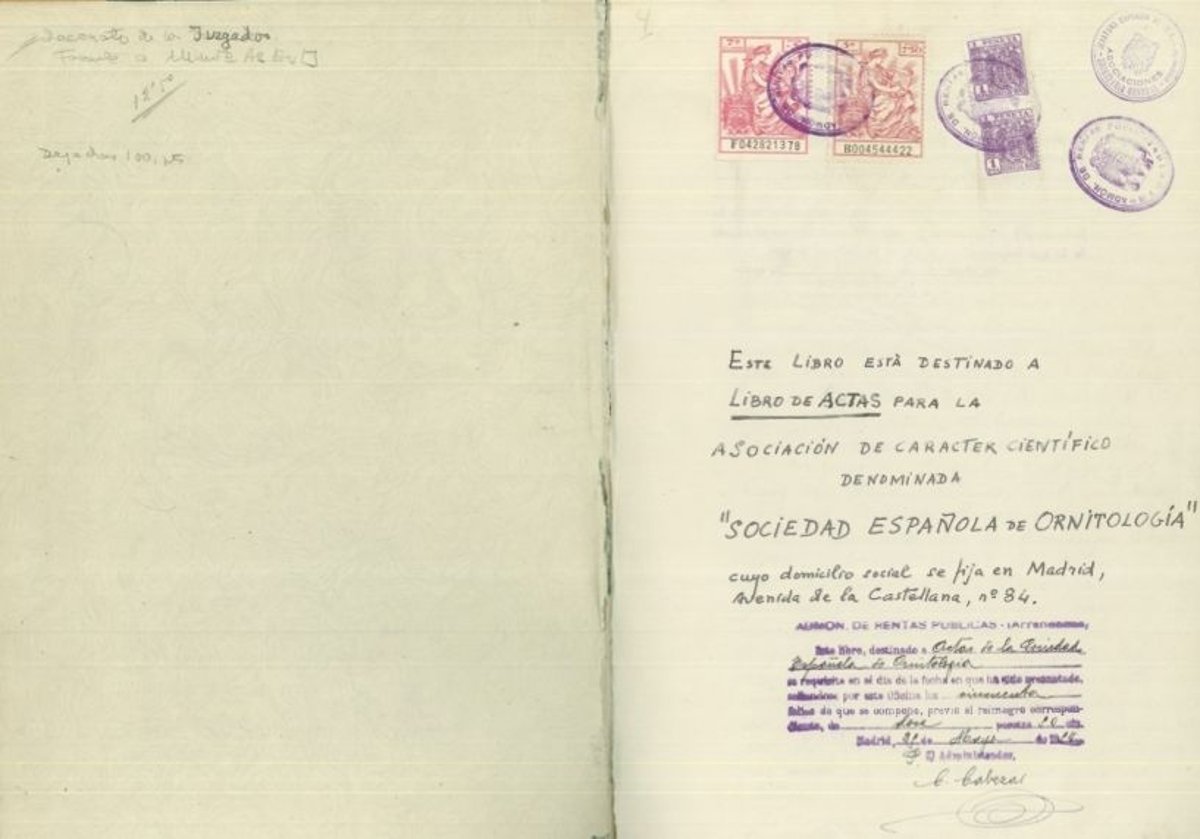 de la Juzgados
12'50
Dejados 100, pts
F042821378
B004544422
1 PESETA
1 PESETA
ASOCIACIONES
ADMÓN. DE RENTAS PUBLICAS
ESTE LIBRO ESTÀ DESTINADO A
LIBRO DE ACTAS PARA LA
ASOCIACIÓN DE CARACTER CIENTÍFICO
DENOMINADA
"SOCIEDAD ESPAÑOLA DE ORNITOLOGÍA"
cuyo domicilio social se fija en Madrid,
Avenida de la Castellana, nº 84.
ADMÓN. DE RENTAS PUBLICAS
Este libro, destinado a Actas de la Sociedad
Española de Ornitología
se requisita en el día de la fecha en que ha sido presentado,
sellandose por esta Oficina los cincuenta
folios de que se compone, previo el reintegro correspon-
diente, de doce pesetas 50 cts.
Madrid, de Mayo de
El Administrador,
C. Cabezas